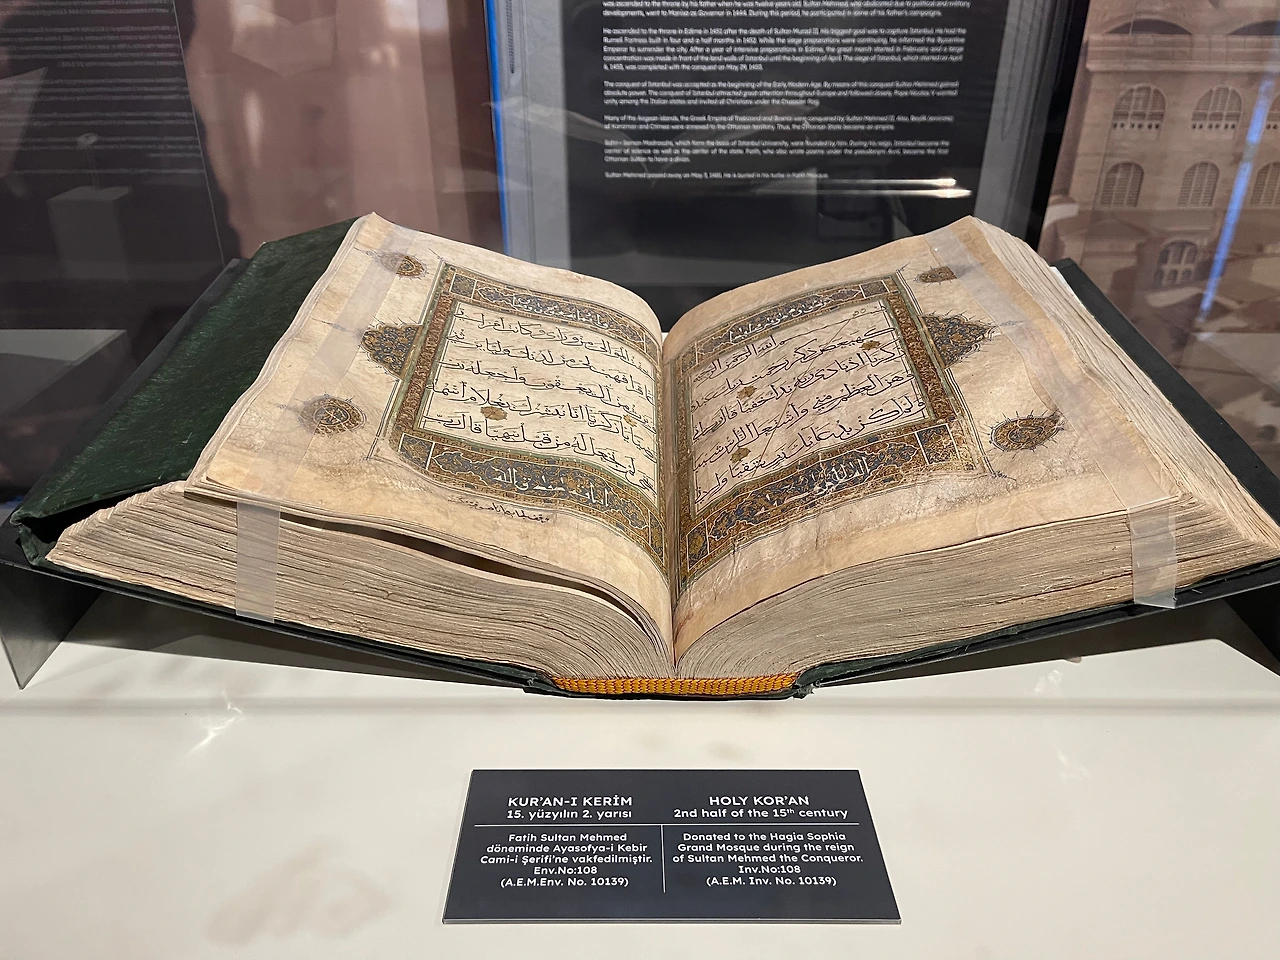 was ascended to the throne by his father when he was twelve years old. Sultan Mehmed, who abdicated due to political and military
developments, went to Manisa as Governor in 1444. During this period, he participated in some of his father's campaigns.
He ascended to the throne in Edirne in 1451 after the death of Sultan Murad II. His biggest goal was to capture Istanbul. He had the
Rumeli Fortress built in four and a half months in 1452. While the siege preparations were continuing, he informed the Byzantine
Emperor to surrender the city. After a year of intensive preparations in Edirne, the great march started in February and a large
concentration was made in front of the land walls of Istanbul until the beginning of April. The siege of Istanbul, which started on April
6, 1453, was completed with the conquest on May 29, 1453.
The conquest of Istanbul was accepted as the beginning of the Early Modern Age. By means of this conquest Sultan Mehmed gained
absolute power. The conquest of Istanbul attracted great attention throughout Europe and followed closely. Pope Nicolas V wanted
unity among the Italian states and invited all Christians under the Crusader flag.
Many of the Aegean islands, the Greek Empire of Trebizond and Bosnia were conquered by Sultan Mehmed II. Also,
of Karaman and Crimea were annexed to the Ottoman territory. Thus, the Ottoman State became an empire.
Sahn-ı Seman Madrasahs, which form the basis of Istanbul University, were founded by him. During his reign, Istanbul became the
center of science as well as the center of the state. Fatih, who also wrote poems under the pseudonym Avni, became the first
Ottoman Sultan to have a divan.
Sultan Mehmed passed away on May 3, 1481. He is buried in his turbe in Fatih Mosque.
الله الرحمن الرحيم
كهيعص ذكر رحمت ربك
زكريا اذ نادى ربه نداء خفيا قال
وهن العظم مني واشتعل الراس شيبا
ولم اكن بدعائك رب شقيا واني
الموالي من وراي وكانت امراتي
عاقرا فهب لي من لدنك وليا يرثني
ويرث من ال يعقوب واجعله رب
رضيا يا زكريا انا نبشرك بغلام اسمه
لم نجعل له من قبل سميا قال رب
KUR'AN-I KERİM
15. yüzyılın 2. yarısı
Fatih Sultan Mehmed
döneminde Ayasofya-i Kebir
Cami-i Şerifi'ne vakfedilmiştir.
Env.No:108
(A.E.M.Env. No. 10139)
HOLY KOR'AN
2nd half of the 15th century
Donated to the Hagia Sophia
Grand Mosque during the reign
of Sultan Mehmed the Conqueror.
Inv.No:108
(A.E.M. Inv. No. 10139)